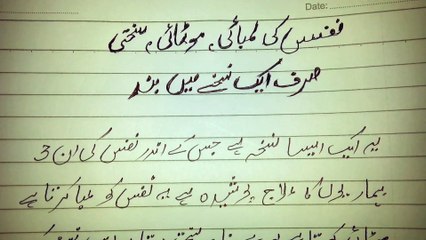 Date:
نفس کی لمبائی، موٹائی، سختی
صرف ایک نسخے میں بند
یہ ایک ایسا نسخہ ہے جس کے اندر نفس کی ان 3
بیماریوں کا علاج پوشیدہ ہے یہ نفس کو لمبا کرتا ہے